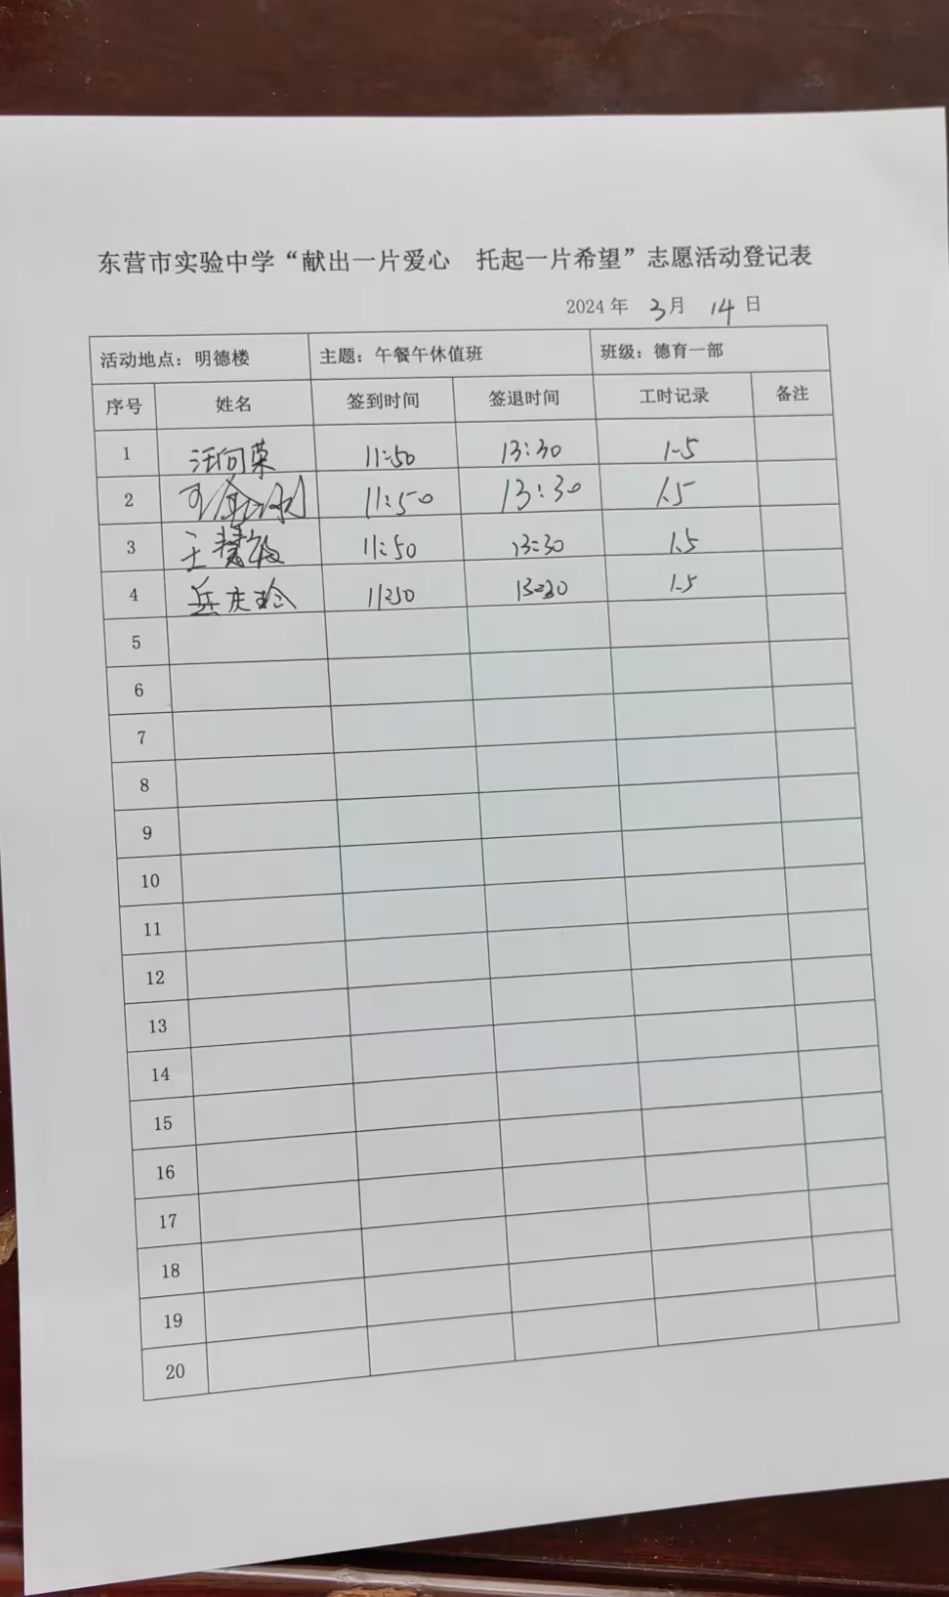 东营市实验中学“献出一片爱心 托起一片希望”志愿活动登记表
2024年 3月 14日
活动地点：明德楼 主题：午餐午休值班 班级：德育一部
序号 姓名 签到时间 签退时间 工时记录 备注
1 汪向荣 11:50 13:30 1.5
2 11:50 13:30 1.5
3 王慧敏 11:50 13:30 1.5
4 11:50 13:30 1.5
5
6
7
8
9
10
11
12
13
14
15
16
17
18
19
20